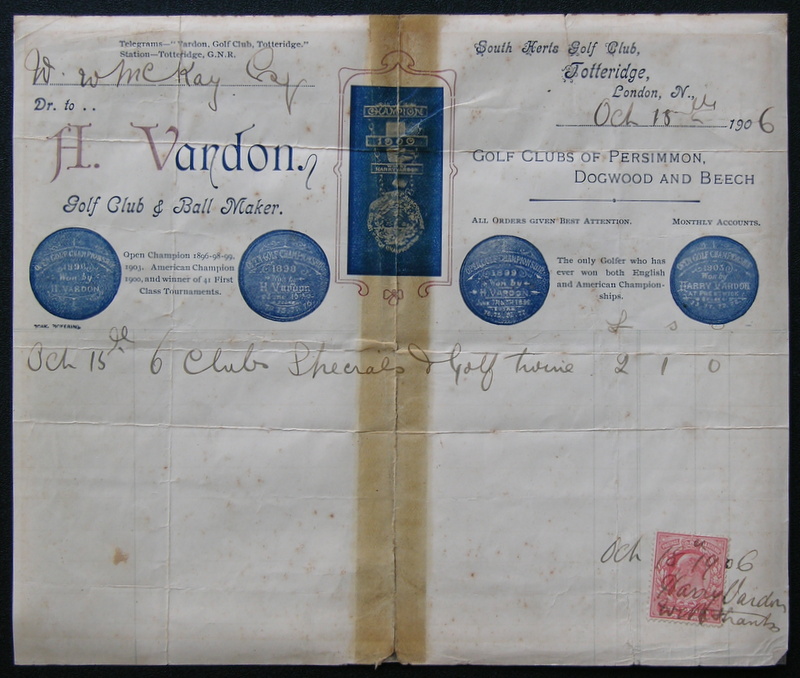 Telegrams—"Vardon, Golf Club, Totteridge."
Station—Totteridge, G.N.R.
W. W McKay Esq
Dr. to . .
H. Vardon.
Golf Club & Ball Maker.
South Herts Golf Club,
Totteridge,
London, N.,
Oct 15th 1906
GOLF CLUBS OF PERSIMMON,
DOGWOOD AND BEECH
ALL ORDERS GIVEN BEST ATTENTION. MONTHLY ACCOUNTS.
CHAMPION
1900
HARRY VARDON
Open Champion 1896-98-99,
1903. American Champion
1900, and winner of 41 First
Class Tournaments.
The only Golfer who has
ever won both English
and American Champion-
ships.
OPEN GOLF CHAMPIONSHIP
1898
Won by
H. VARDON
1899
Won by
H. VARDON
1899
Won by
H. VARDON
1903
Won by
HARRY VARDON
£ s
Oct 15th 6 Clubs Specials & Golf twine 2 1 0
Oct 15th 1906
Harry Vardon
with thanks